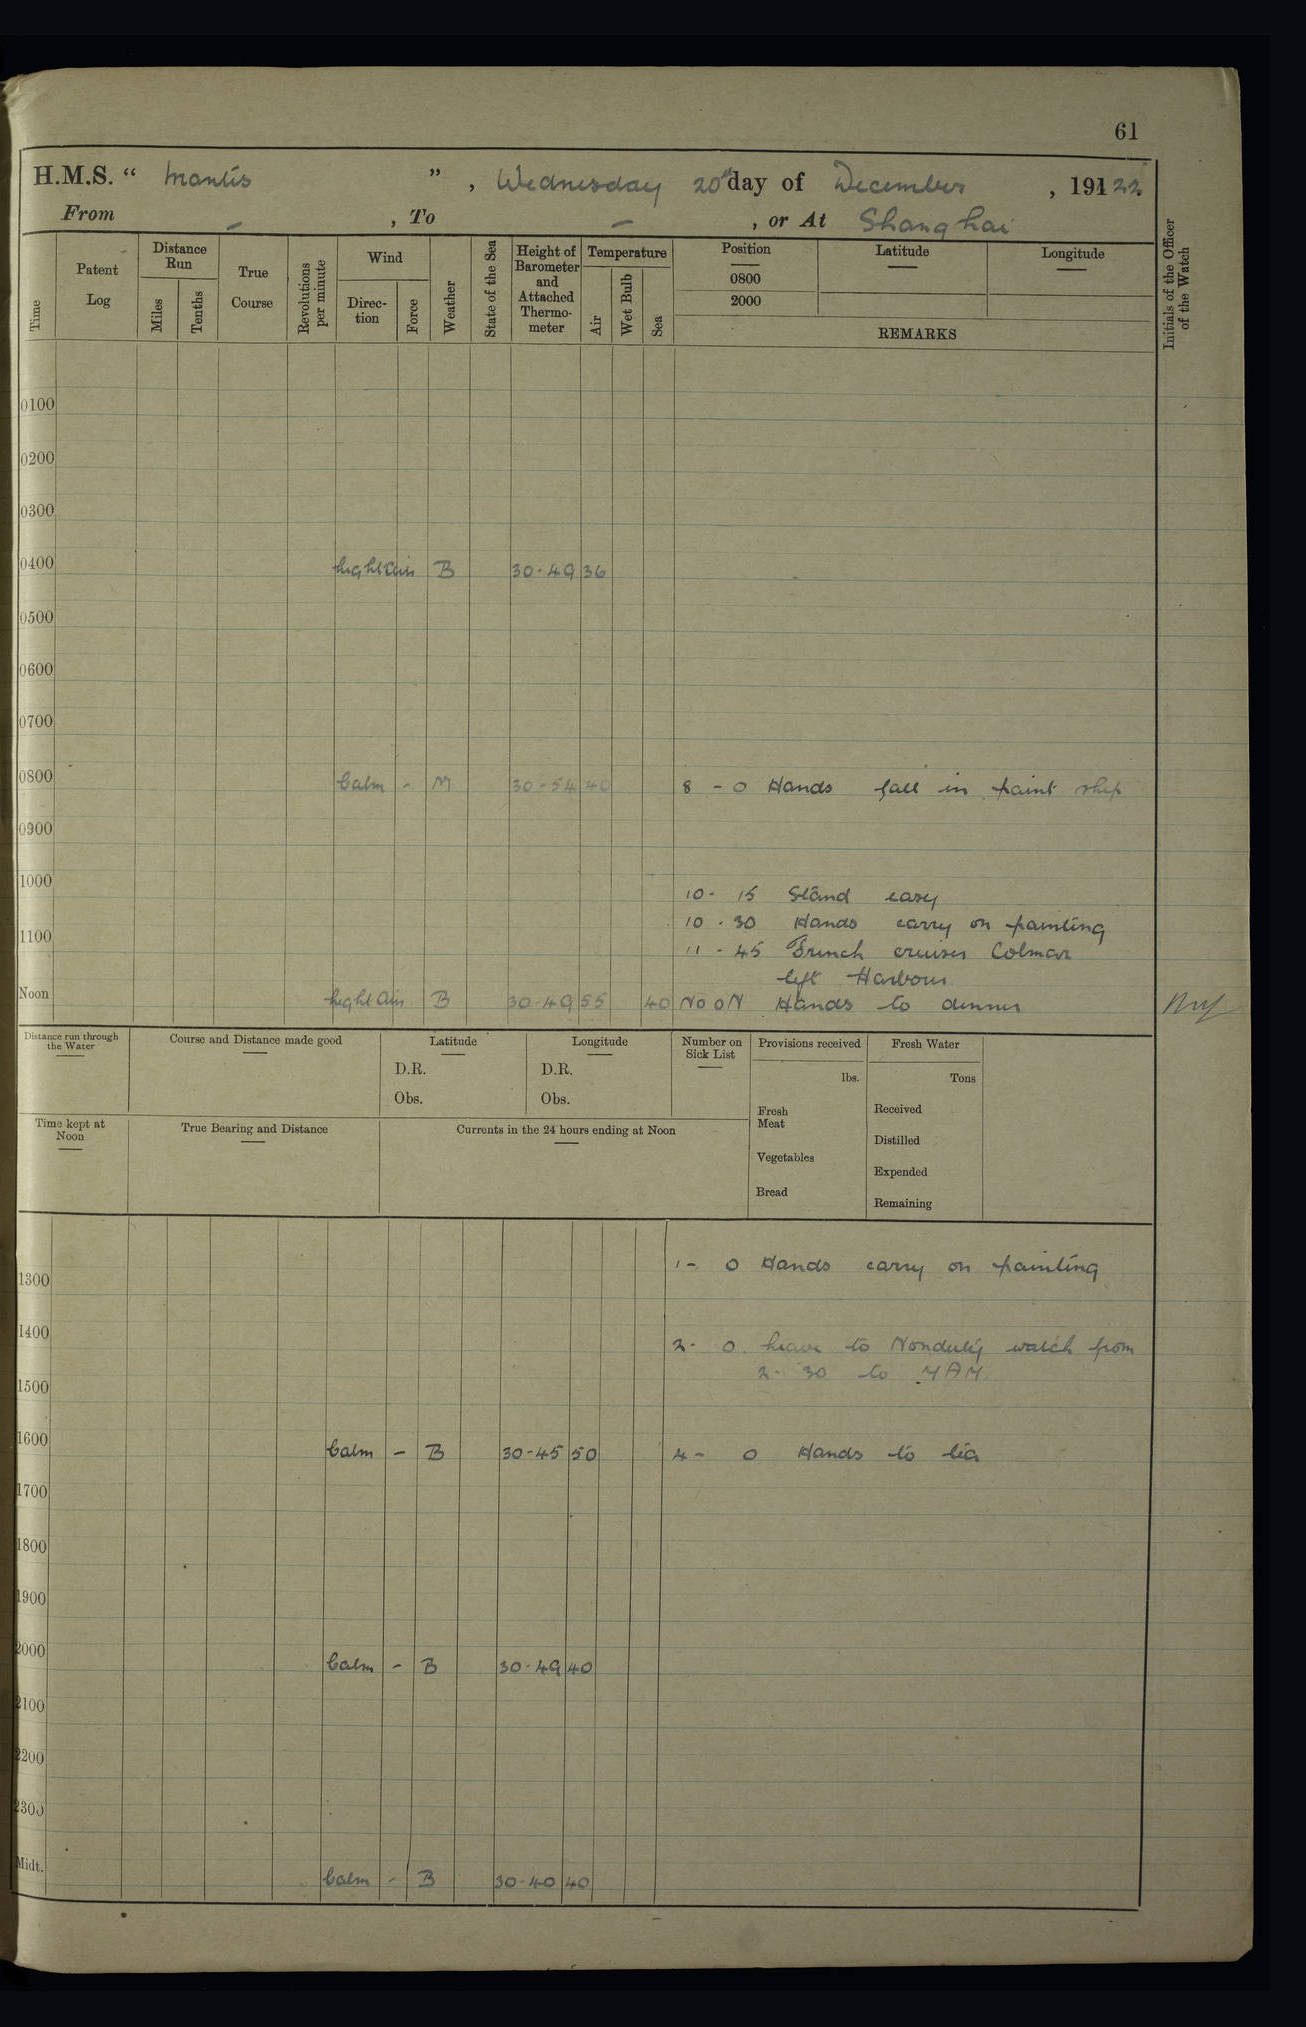 61
H.M.S. “ Mantis ” , Wednesday 20th day of December , 19122
From – , To – , or At Shanghai
Time
Patent Log
Distance Run
Miles
Tenths
True Course
Revolutions per minute
Wind
Direc- tion
Force
Weather
State of the Sea
Height of Barometer and Attached Thermo- meter
Temperature
Air
Wet Bulb
Sea
Position
0800
2000
Latitude
Longitude
REMARKS
Initials of the Officer of the Watch
0100
0200
0300
0400 Light Airs B 30-49 36
0500
0600
0700
0800 Calm - M 30-54 40 8 - 0 Hands fall in paint ship
0900
1000
10 - 15 Stand easy
10 - 30 Hands carry on painting
1100
11 - 45 French cruiser Colmar
left Harbour
Noon Light Airs B 30-49 55 40 NOON Hands to dinner
Distance run through the Water
Course and Distance made good
Latitude
D.R.
Obs.
Longitude
D.R.
Obs.
Number on Sick List
Provisions received
lbs.
Fresh Meat
Vegetables
Bread
Fresh Water
Tons
Received
Distilled
Expended
Remaining
Time kept at Noon
True Bearing and Distance
Currents in the 24 hours ending at Noon
1300 1 - 0 Hands carry on painting
1400 2 - 0 Leave to Nonduty watch from
2 - 30 to 7AM
1500
1600 Calm - B 30-45 50 4 - 0 Hands to tea
1700
1800
1900
2000 Calm - B 30-49 40
2100
2200
2300
Midt. Calm - B 30-40 40